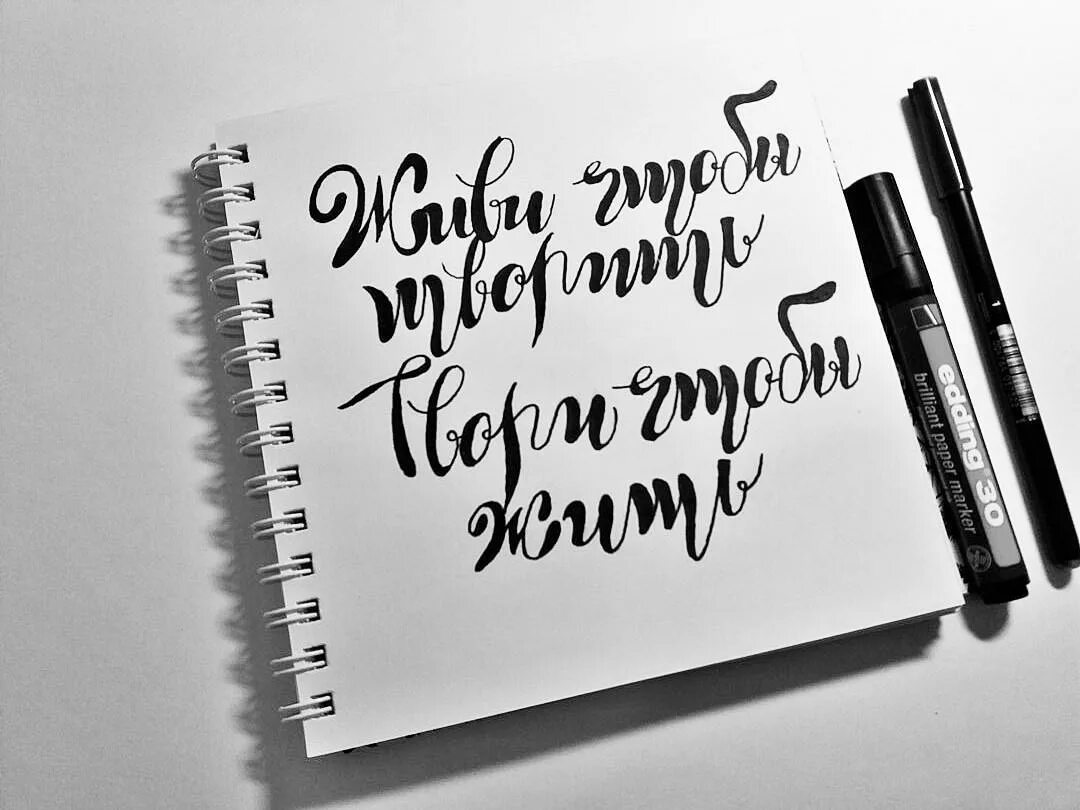 Живи чтобы
творить
Твори чтобы
жить
edding 30
brilliant paper marker